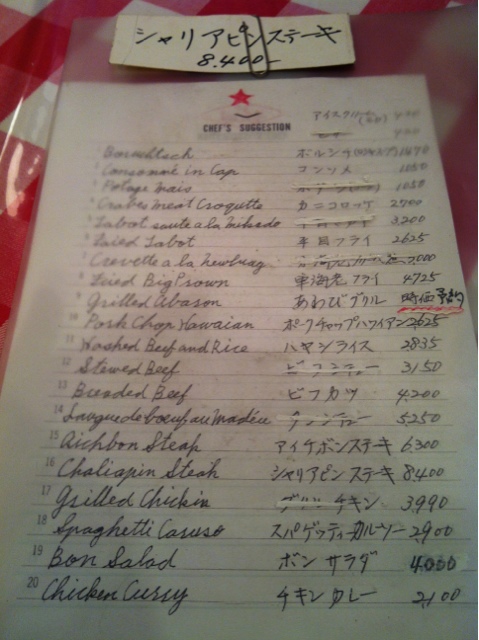 シャリアピンステーキ
8.400-
CHEF'S SUGGESTION
アイスクリーム
Borschtsch ボルシチ 1470
Consommé in Cap コンソメ 1050
Potage Mais 1050
Crabes Meat Croquette カニコロッケ 2700
3,200
Fried Tabot 平目フライ 2625
Crevette a la Newburg
Fried Big Prown 車海老フライ 4725
9 Grilled Abason あわびグリル 時価 予約
10 Pork Chop Hawaiian ポークチャップハワイアン 2625
11 Hashed Beef and Rice ハヤシライス 2835
12 Stewed Beef 3150
13 Breaded Beef ビフカツ 4200
14 5250
15 Aichbon Steak アイチボンステーキ 6,300
16 Chaliapin Steak シャリアピンステーキ 8,400
17 Grilled Chickin チキン 3,990
18 Spaghetti Caruso スパゲッティカルーソー 2900
19 Bon Salad ボンサラダ 4000
20 Chicken Curry チキンカレー 2,100